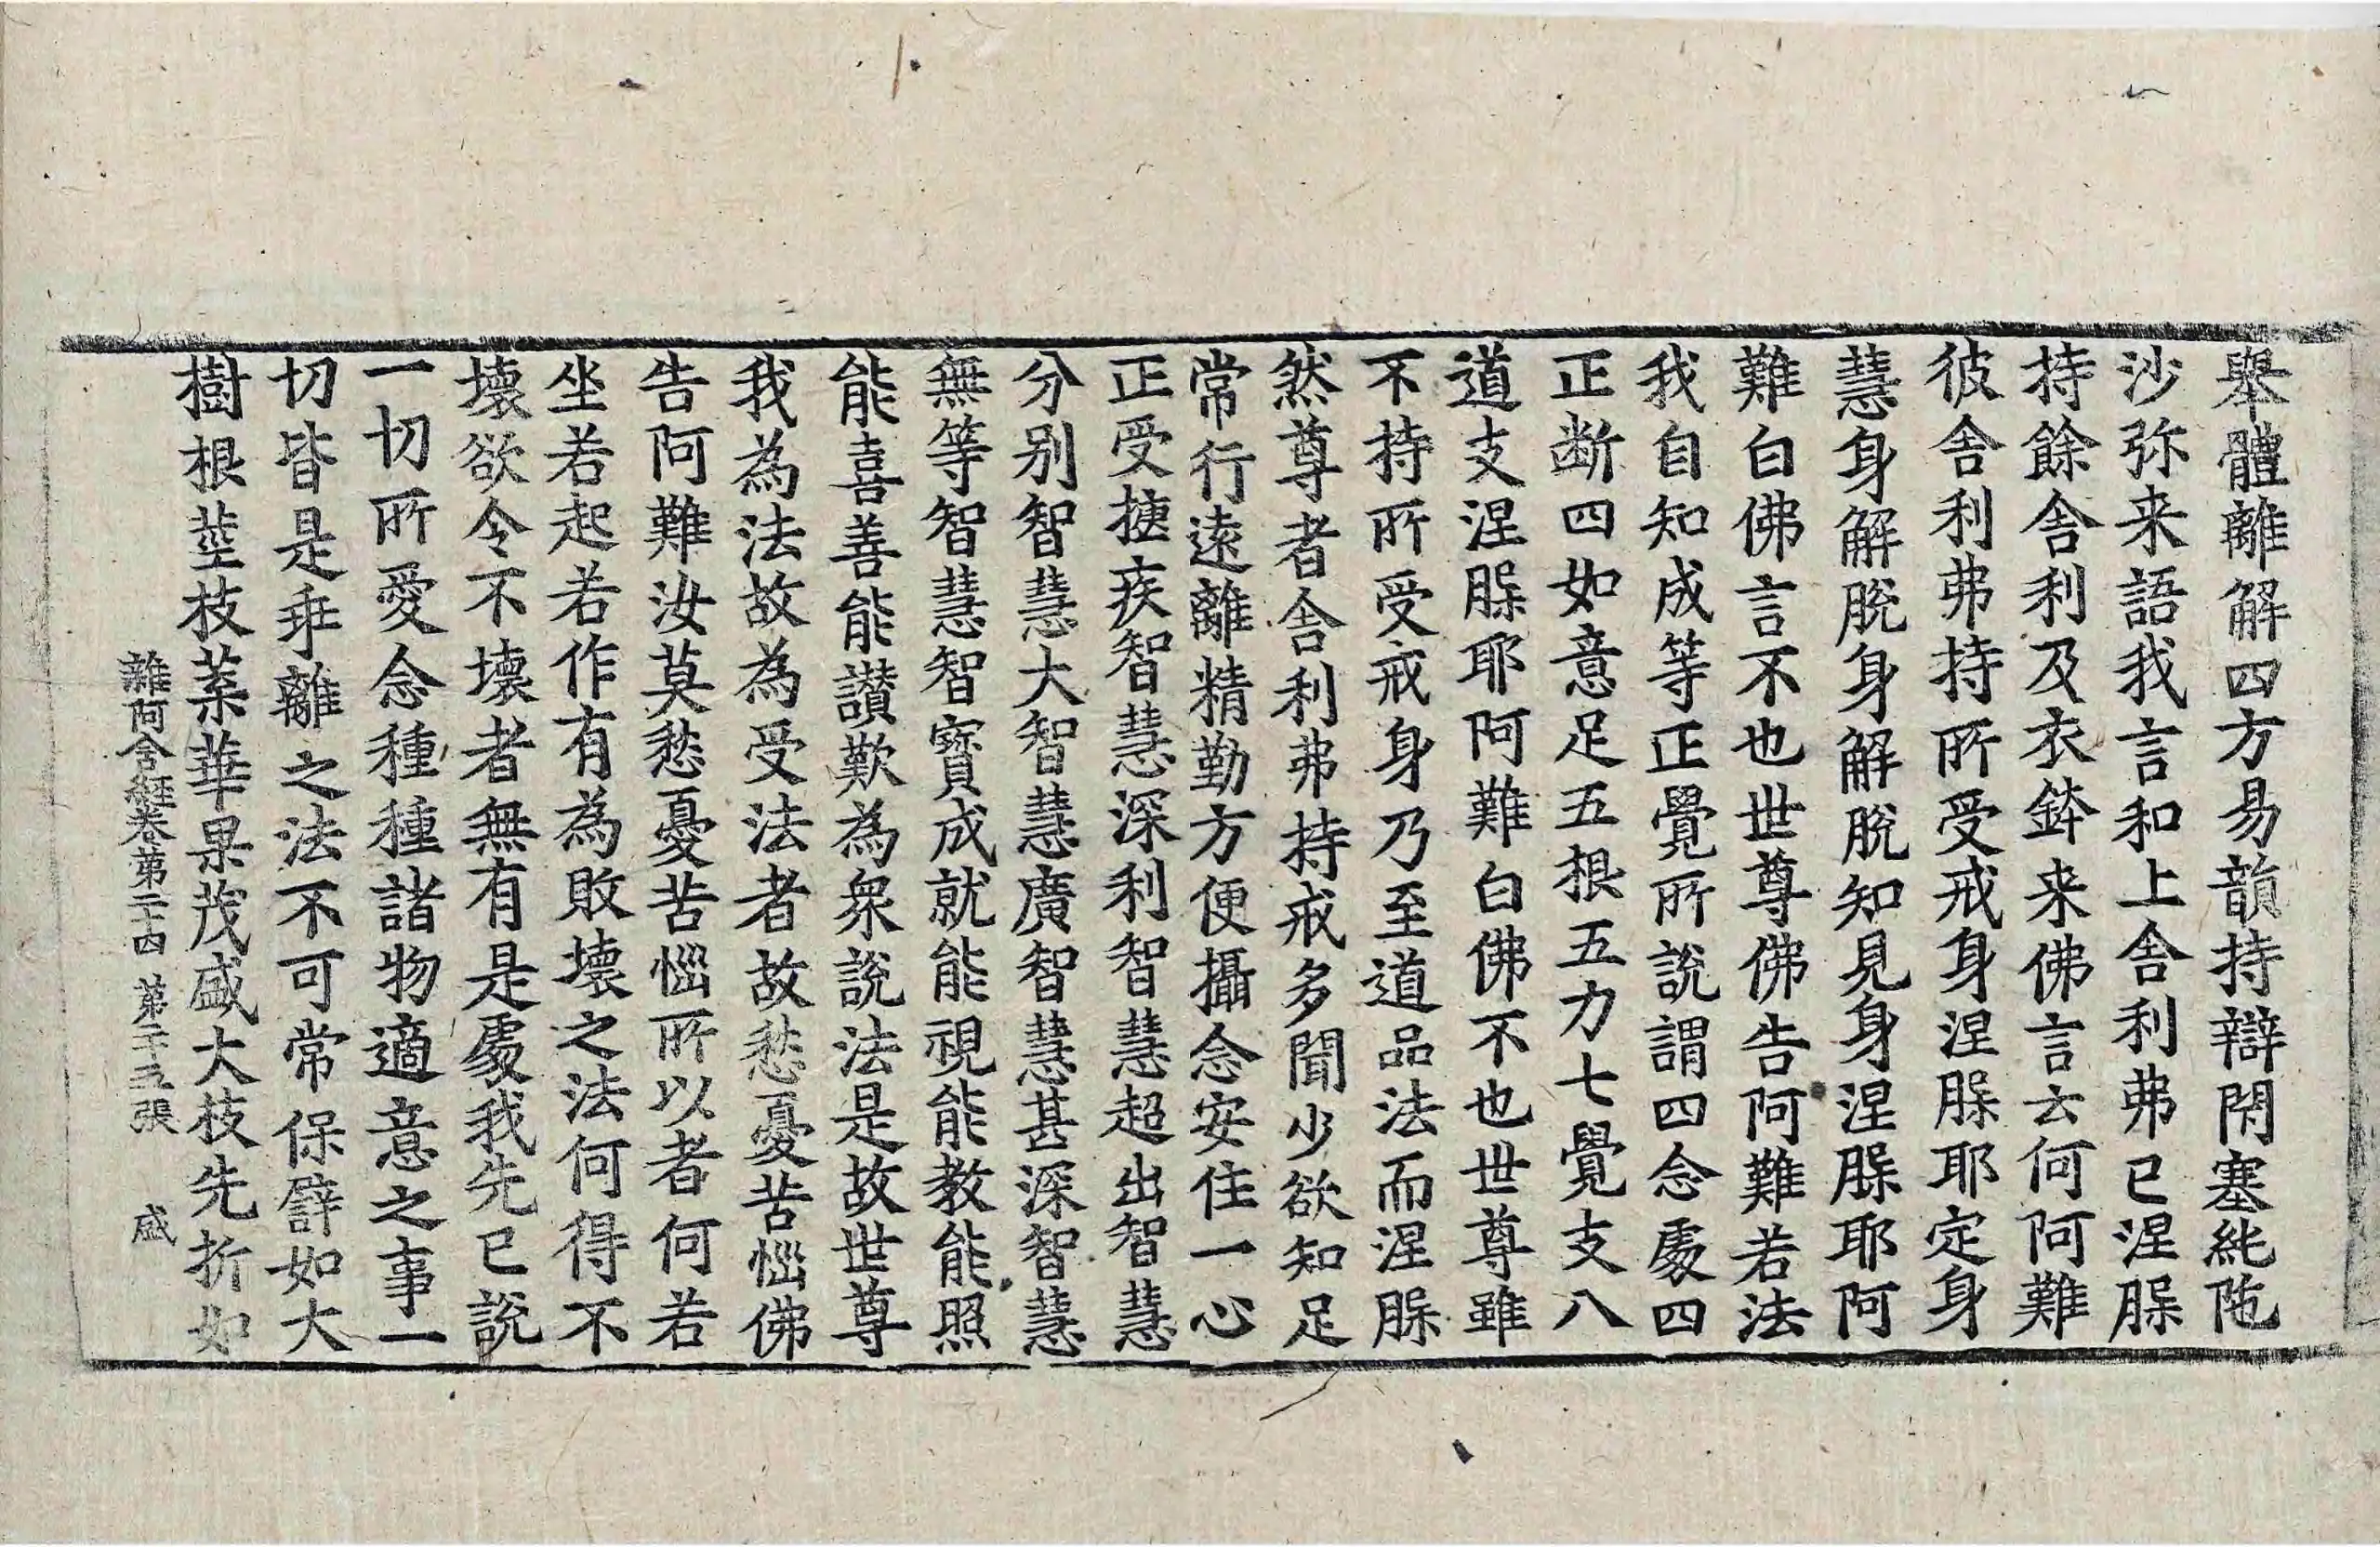 舉體離解四方易韻持辯閇塞純陁
沙弥来語我言和上舎利弗已涅䏶
持餘舎利及衣鉢来佛言云何阿難
彼舎利弗持所受戒身涅䏶耶定身
慧身解脫身解脫知見身涅䏶耶阿
難白佛言不也世尊佛告阿難若法
我自知成等正覺所說謂四念處四
正断四如意足五根五力七覺支八
道支涅䏶耶阿難白佛不也世尊雖
不持所受戒身乃至道品法而涅䏶
然尊者舎利弗持戒多聞少欲知足
常行遠離精勤方便攝念安住一心
正受捷疾智慧深利智慧超出智慧
分别智慧大智慧廣智慧甚深智慧
無等智慧智寳成就能視能教能照
能喜善能讃歎為衆說法是故世尊
我為法故為受法者故愁憂苦惱佛
告阿難汝莫愁憂苦惱所以者何若
坐若起若作有為敗壞之法何得不
壞欲令不壞者無有是處我先已說
一切所愛念種種諸物適意之事一
切皆是乖離之法不可常保譬如大
樹根莖枝葉華果茂盛大枝先折如
雜阿含經卷第二十四 第二十五張 盛